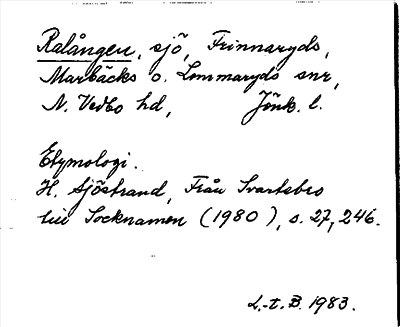 Ralången, sjö, Frinnaryds,
Marbäcks o. Lommaryds snr,
N. Vedbo hd, Jönk. l.
Etymologi.
H. Sjöstrand, Från Svartebro
till Socknamen (1980), s. 27, 246.
L.-t. B. 1983.